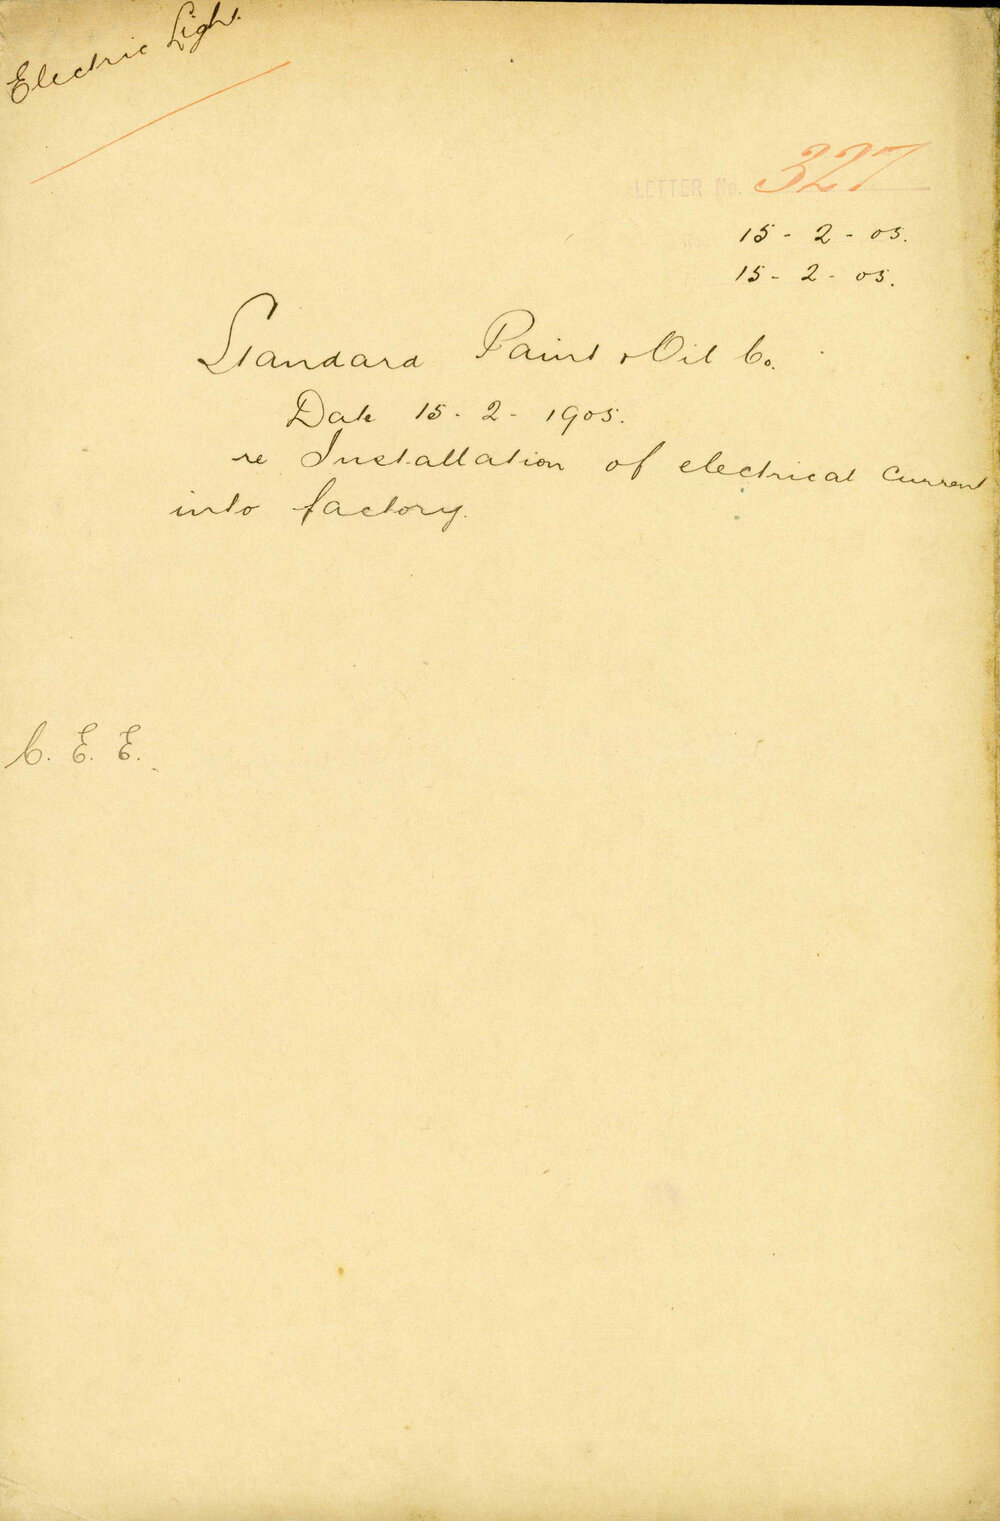 Electric Light
LETTER No. 327
15 - 2 - 05.
15 - 2 - 05.
Standard Paint & Oil Co.
Date 15 - 2 - 1905.
re Installation of electrical current
into factory.
C. E. E.